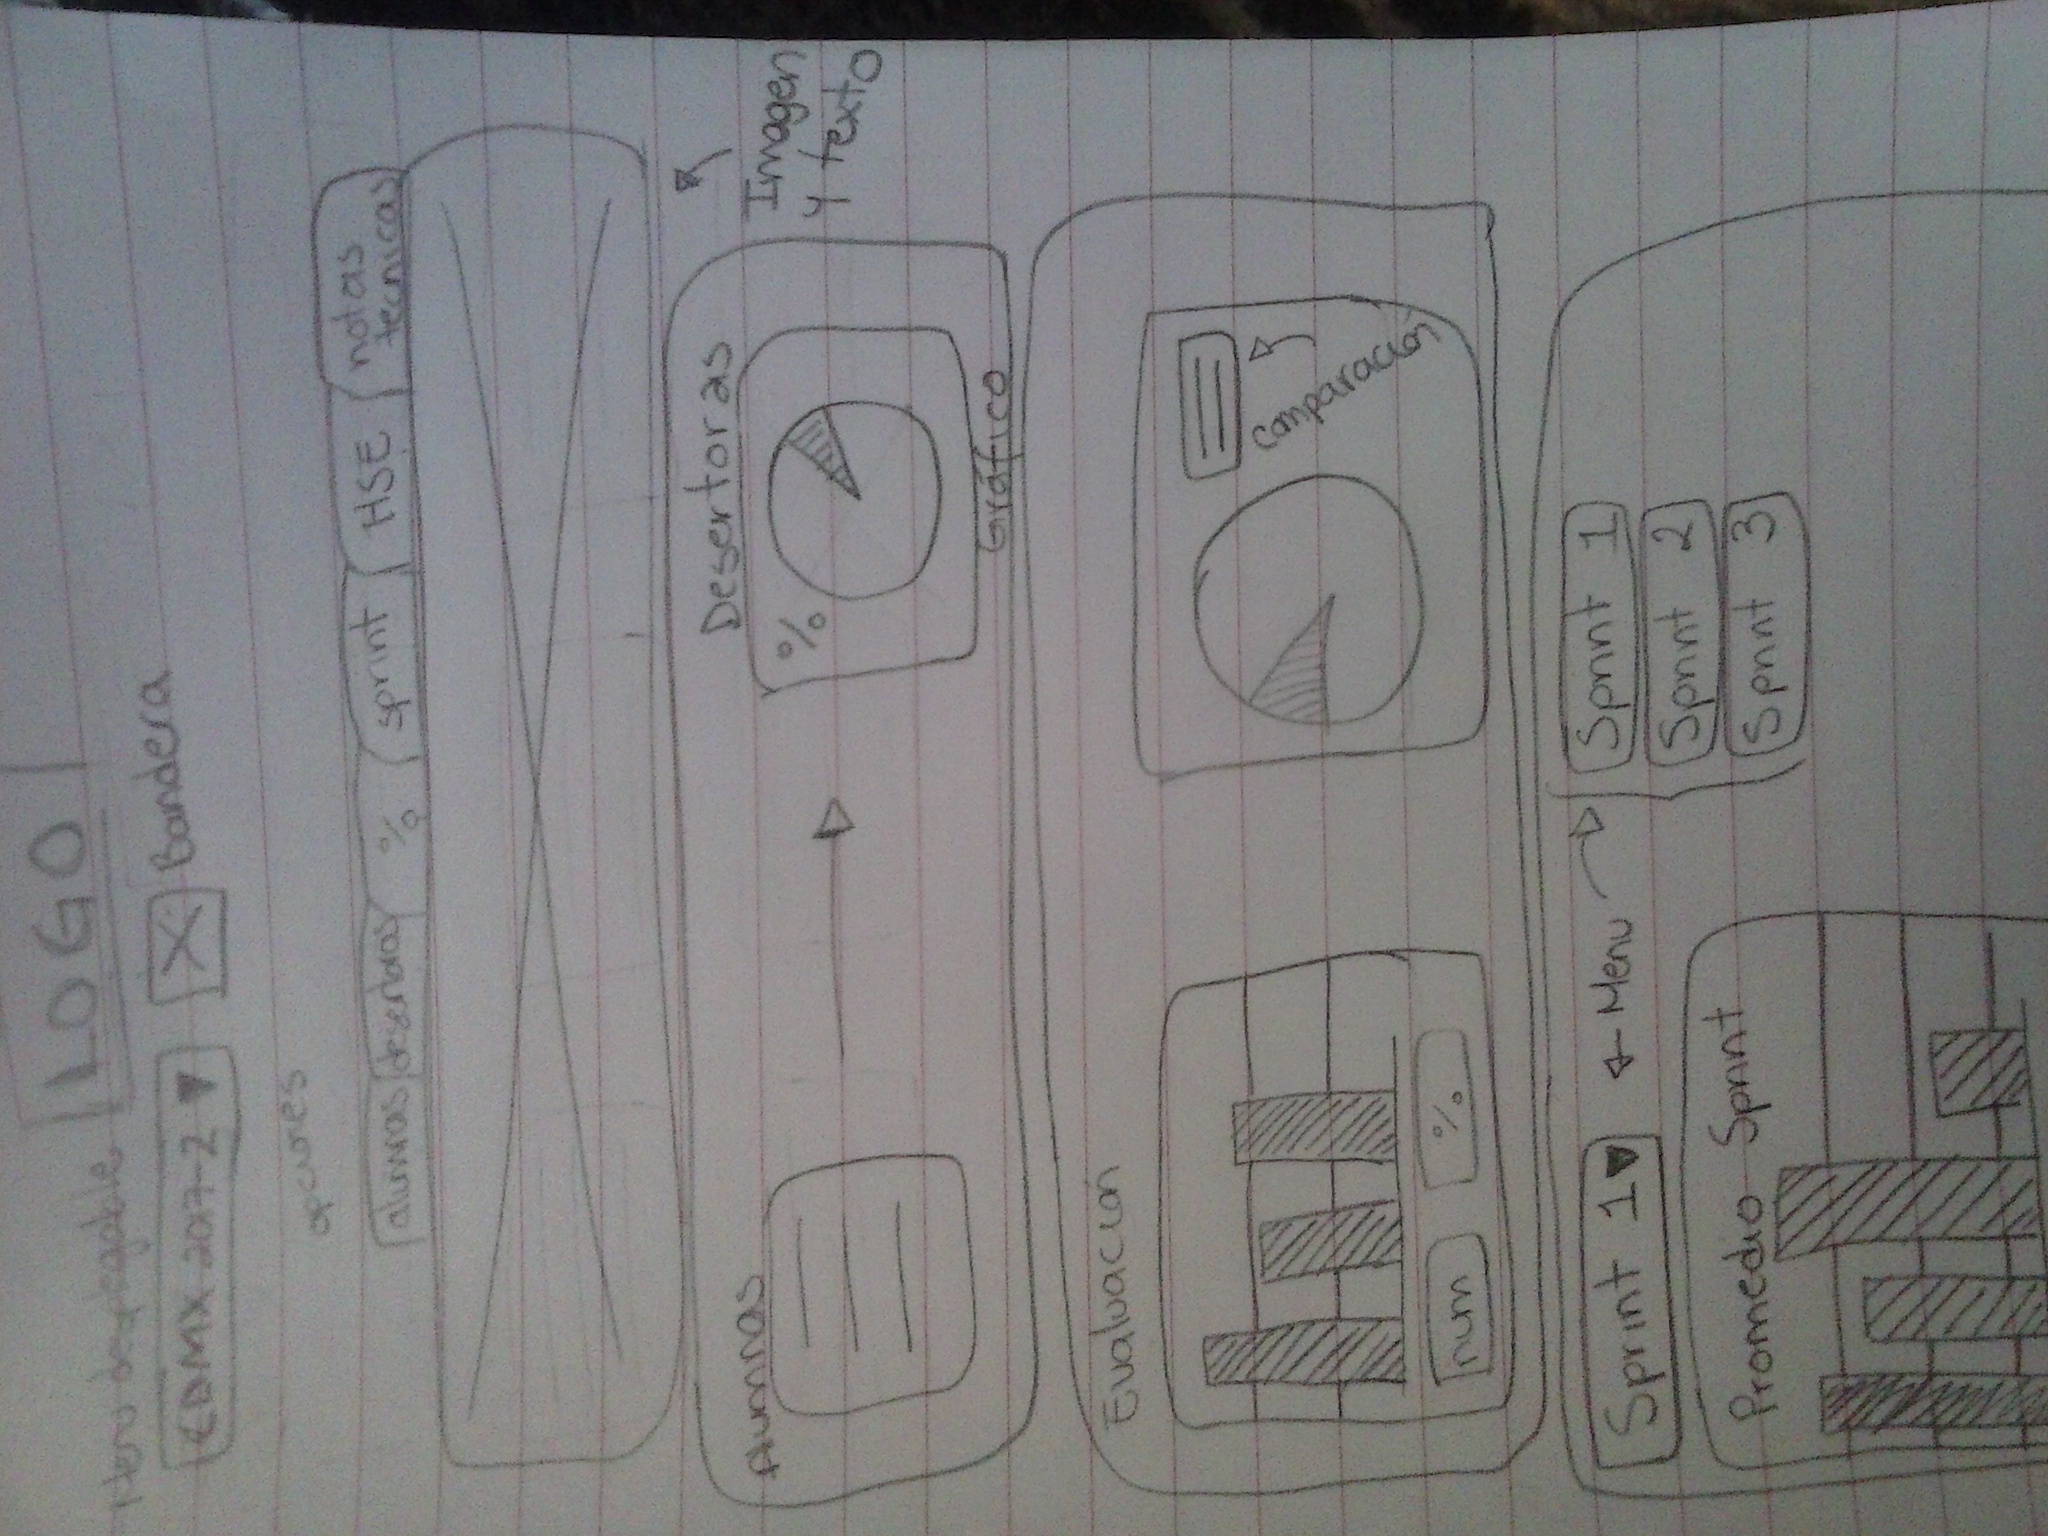 LOGO
Menu desplegable
CDMX 2017-2 ▼
Bandera
opciones
alumnas desertoras % sprint HSE notas tecnicas
Imagen
y texto
Alumnas
Desertoras
%
Gráfico
Evaluación
num
%
comparación
Sprint 1 ▼
Menu
Sprint 1
Sprint 2
Sprint 3
Promedio Sprint